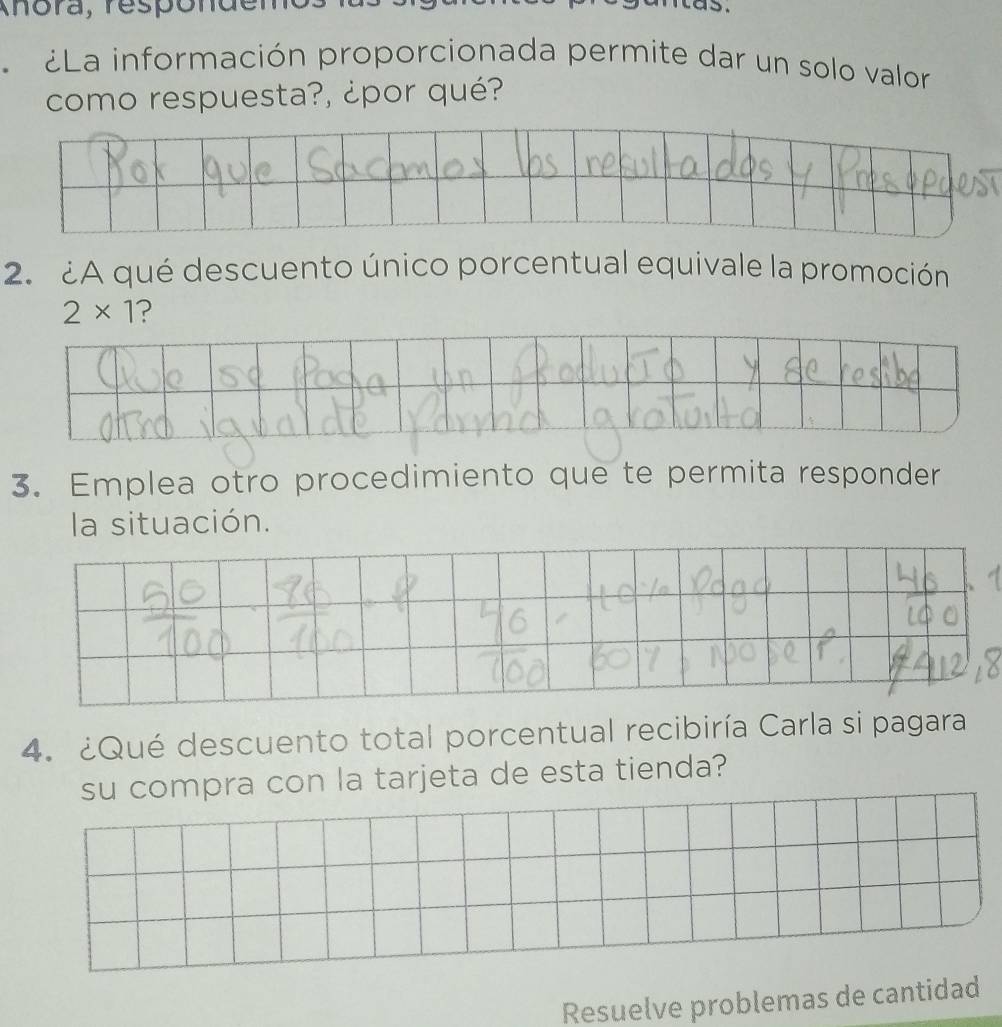 Ahora, respondemos las siguientes preguntas:
. ¿La información proporcionada permite dar un solo valor
como respuesta?, ¿por qué?
Por que Sacamos los resultados y
2. ¿A qué descuento único porcentual equivale la promoción
2 × 1?
Que se Paga un Producto y se resibe
otro igual de Forma gratuita
3. Emplea otro procedimiento que te permita responder
la situación.
50/100 · 80/100 · P 40/100 - 40% Paga 40/100 · 1
60% no se P. 412,8
4. ¿Qué descuento total porcentual recibiría Carla si pagara
su compra con la tarjeta de esta tienda?
Resuelve problemas de cantidad